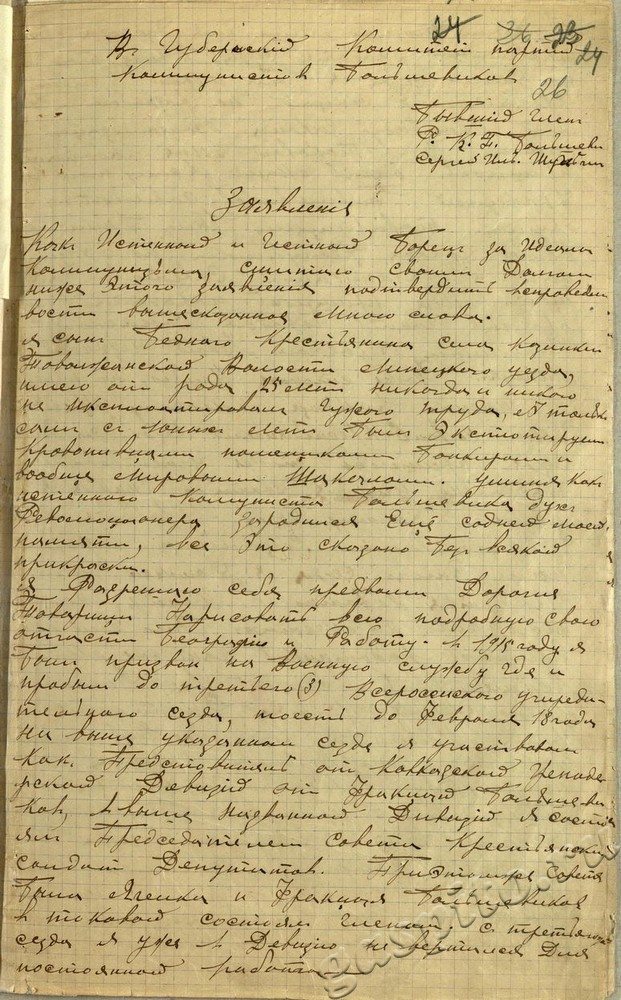 24 36 23 24
В Губернскій Комитет партий
Коммунистов Большевиков
26
Бывшій член
Р. К. П. Большеви
Сергей Ил.
Заявленія
Как Истенной и Честной Борец за идеалы
Коммунизьма, считаю своим Долгом
ниже Этого заявления подтвердить справедли
вости вышесказанная мною слова.
я сын Бедного Крестьянина села Казинки
Волости Липецкого уезда,
имею от роду 25 лет никогда и никого
не чужого труда, А только
сам с юных лет Был
кровопивцами помещиками Банкирами и
вообще мировыми Шакалами. у меня как
истенного Комуниста Большевика дух
Революционера зародился Ещё с моей
памяти, все Это сказано Без всякой
прикраски.
я Разрешаю себя пред вами Дорогия
Товарищи Нарисовать всю подробную свою
отчасти Биографию и Работу. в 1915 году я
Был призван на Военную службу где и
пробыл до третьего (3) Всеросенского учреди-
тельного сезда, тоесть до Февраля 18 года
На выше указанном сезде я участвовал
Как Представитель от Кавказской Гренаде
рской Девизіи от Фракціи Большеви
ков, в выше названной Дивизіи я состо
ял Председателем совета Крестьянских
солдат Депутатов. При этом же Совете
Была Ячейка и Фракция Большевиков
в таковой состоял членом, с третьяго
сезда я уже в Девизию не вертался Для
постоянной работы